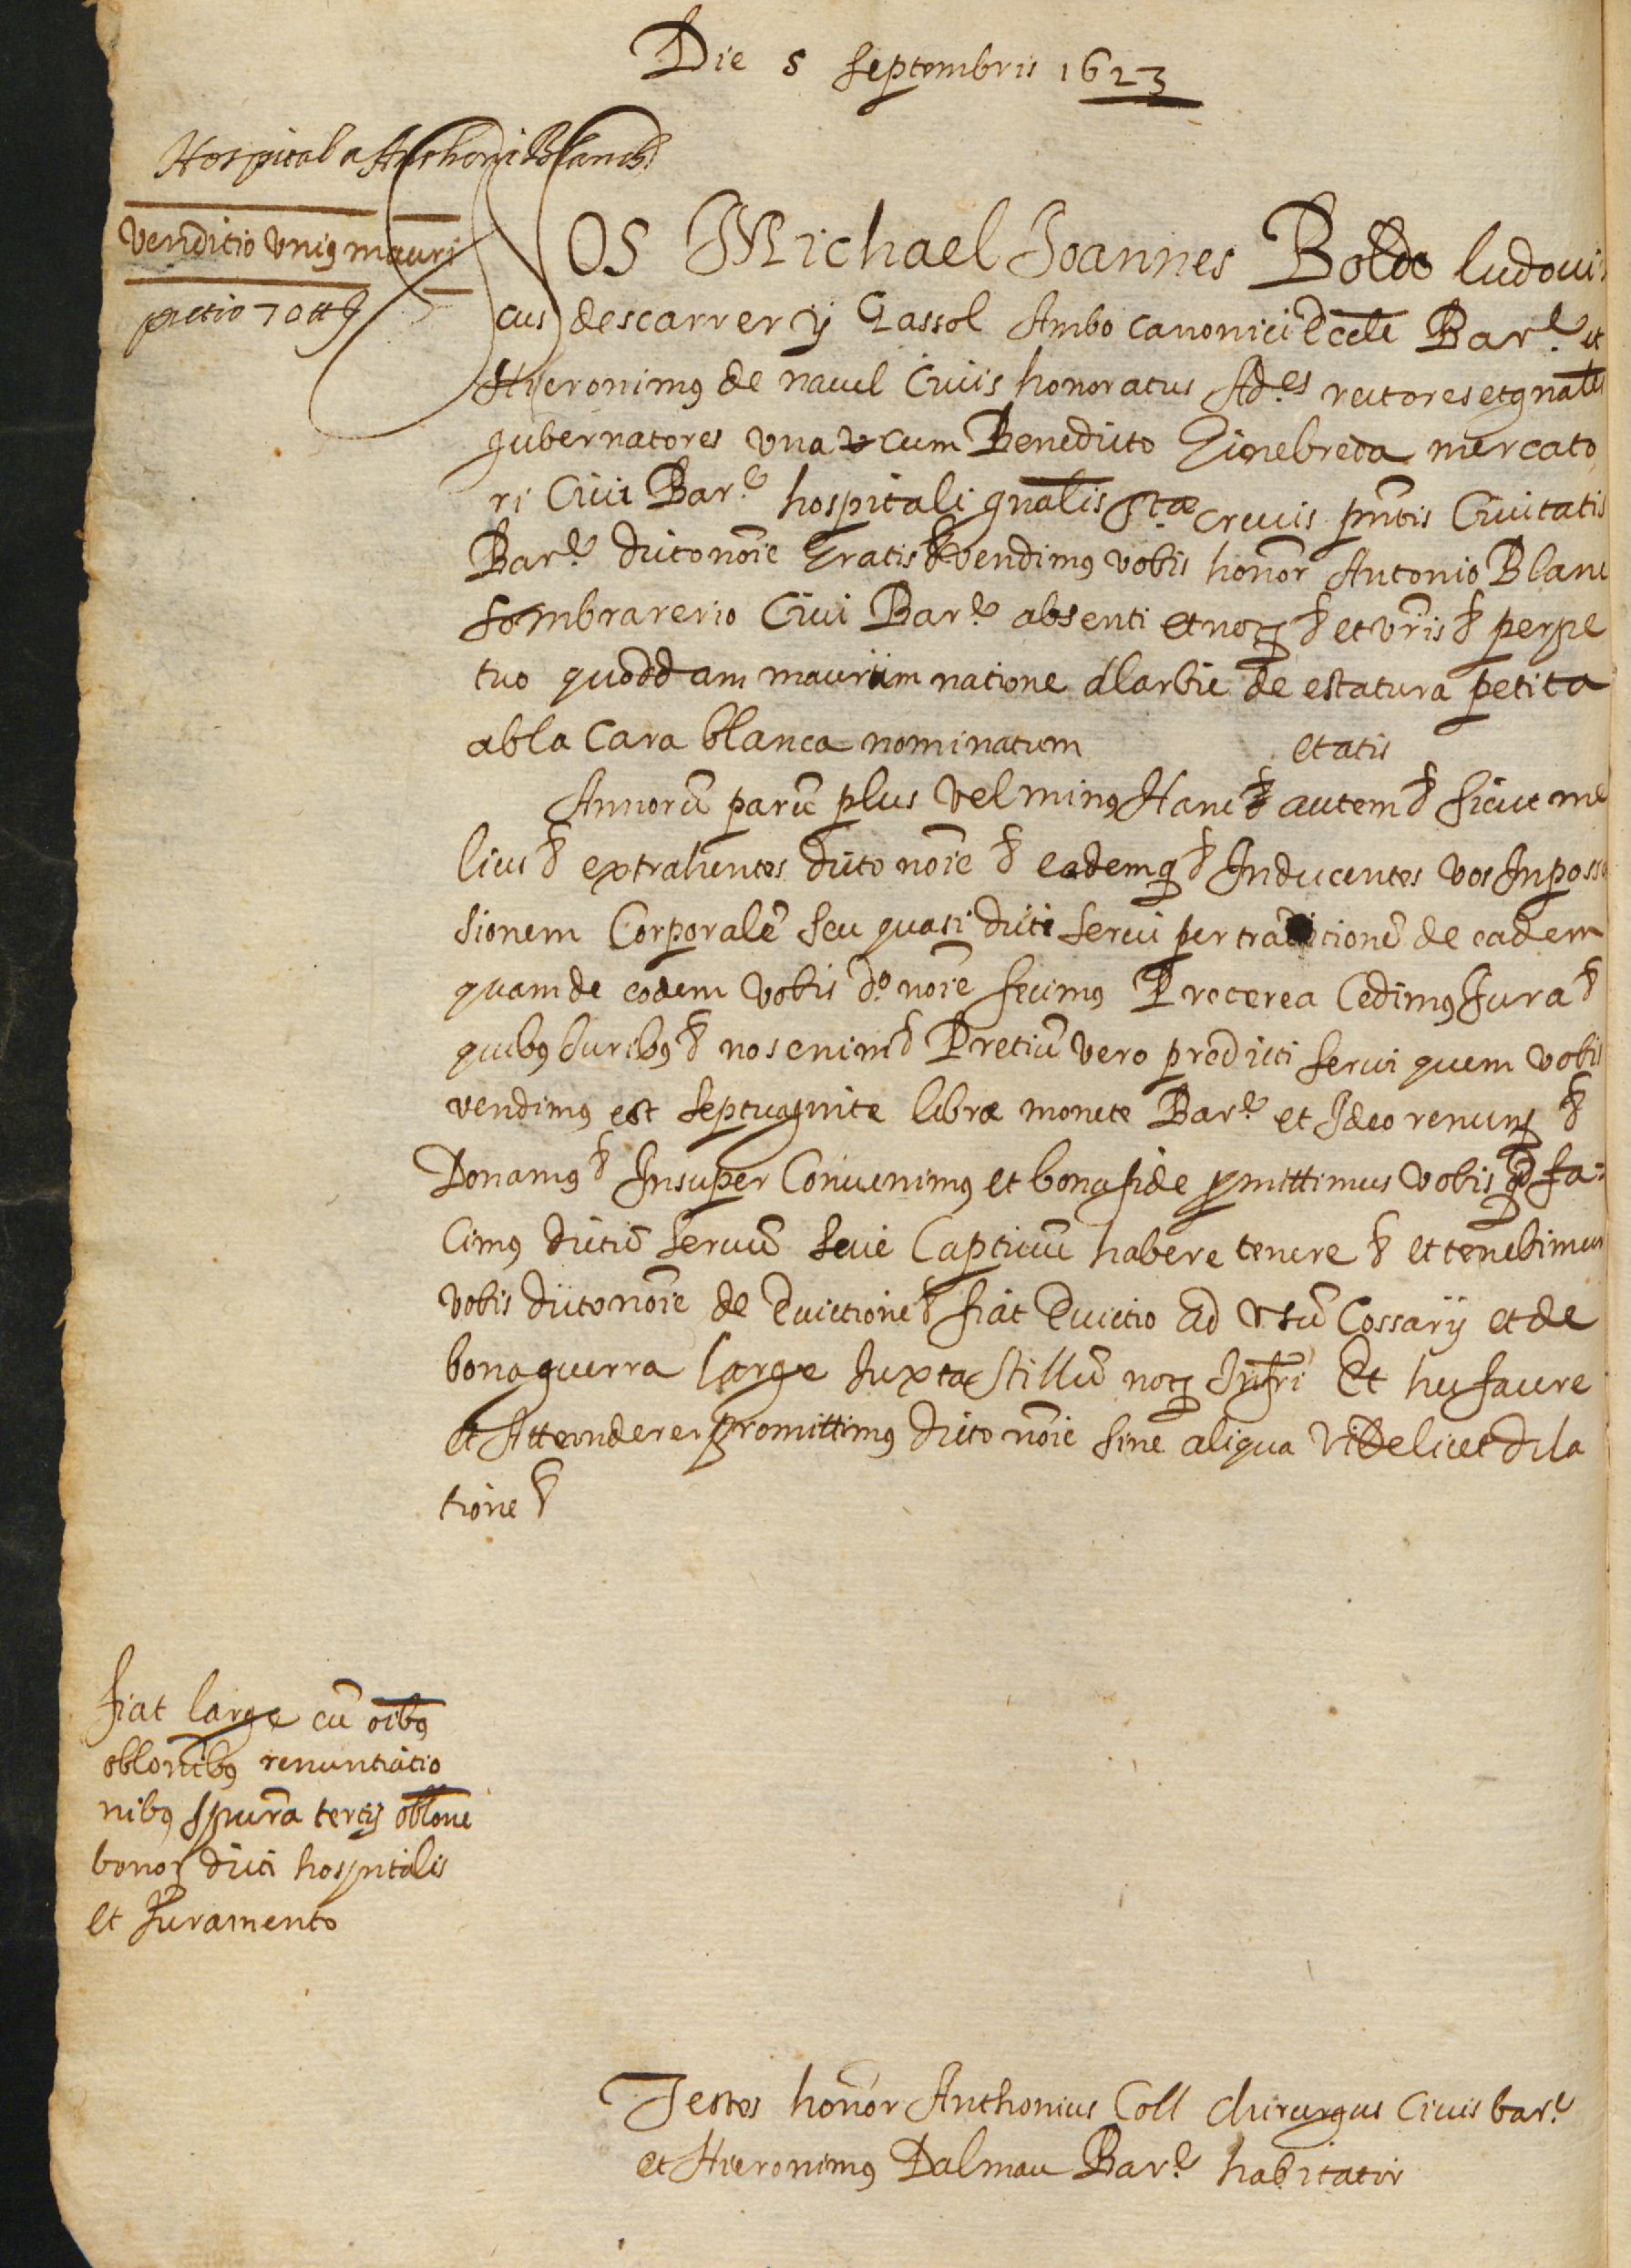 Die 5 septembris 1623
Hospital a Anthoni Blanch
Venditio unius mauri
pretio 70 ℔ ß
NOS Michael Joannes Boldo ludovi
cus descarrer y Gassol Ambo canonici Eccłie Barᵉ et
Hieronimꝰ de navel Civis honoratus Adᵉˢ rectores et gńales
gubernatores una cum Benedicto Ginebreda mercato
ri Civi Barᵉ hospitali gńalis Stæ crucis pńtis Civitatis
Barᵉ dicto noīe Gratis &̃ vendimꝰ vobis honor̄ Antonio Blanc
sombrarerio Civi Barᵉ absenti et noꝝ &̃ et vr̄is &̃ perpe
tuo quoddam maurum natione alarbie de estatura petita
ab la Cara blanca nominatum etatis
Annorū parū plus vel minꝰ Hanc autem &̃ sicut me
lius &̃ extrahentes dicto noīe &̃ eademqꝫ &̃ Inducentes vos In posse
sionem Corporalē seu quasi dicti servi per traditionē de eadem
quam de eodem vobis dº noīe fecimꝰ Preterea Cedimꝰ Jura &̃
quibꝰ Juribꝰ &̃ nos enim &̃ Pretiū vero predicti servi quem vobis
vendimꝰ est septuaginte libræ monete Barᵉ et Ideo renunꝝ &̃
Donamꝰ &̃ Insuper Convenimꝰ et bona fide ꝓmittimus vobis qd̄ fa=
cimꝰ dictū servū seu Captivū habere tenere &̃ et tenebimur
vobis dicto noīe de Evictione &̃ fiat Evictio ad usū Cossarij et de
bona guerra large Juxta stillū noꝝ Infr̄i Et hec facere
et Attendere &̃ promittimꝰ dicto noīe sine aliqua videlicet dila
tione &̃
fiat large cū oībꝰ
oblonībꝰ renuntiatio
nibꝰ spūra tertij oblone
bonoꝝ dicti hospitalis
et Juramento
Testes honor̄ Anthonius Coll chirurgus Civis barᵉ
et Hieronimꝰ Dalmau Barᵉ habitator